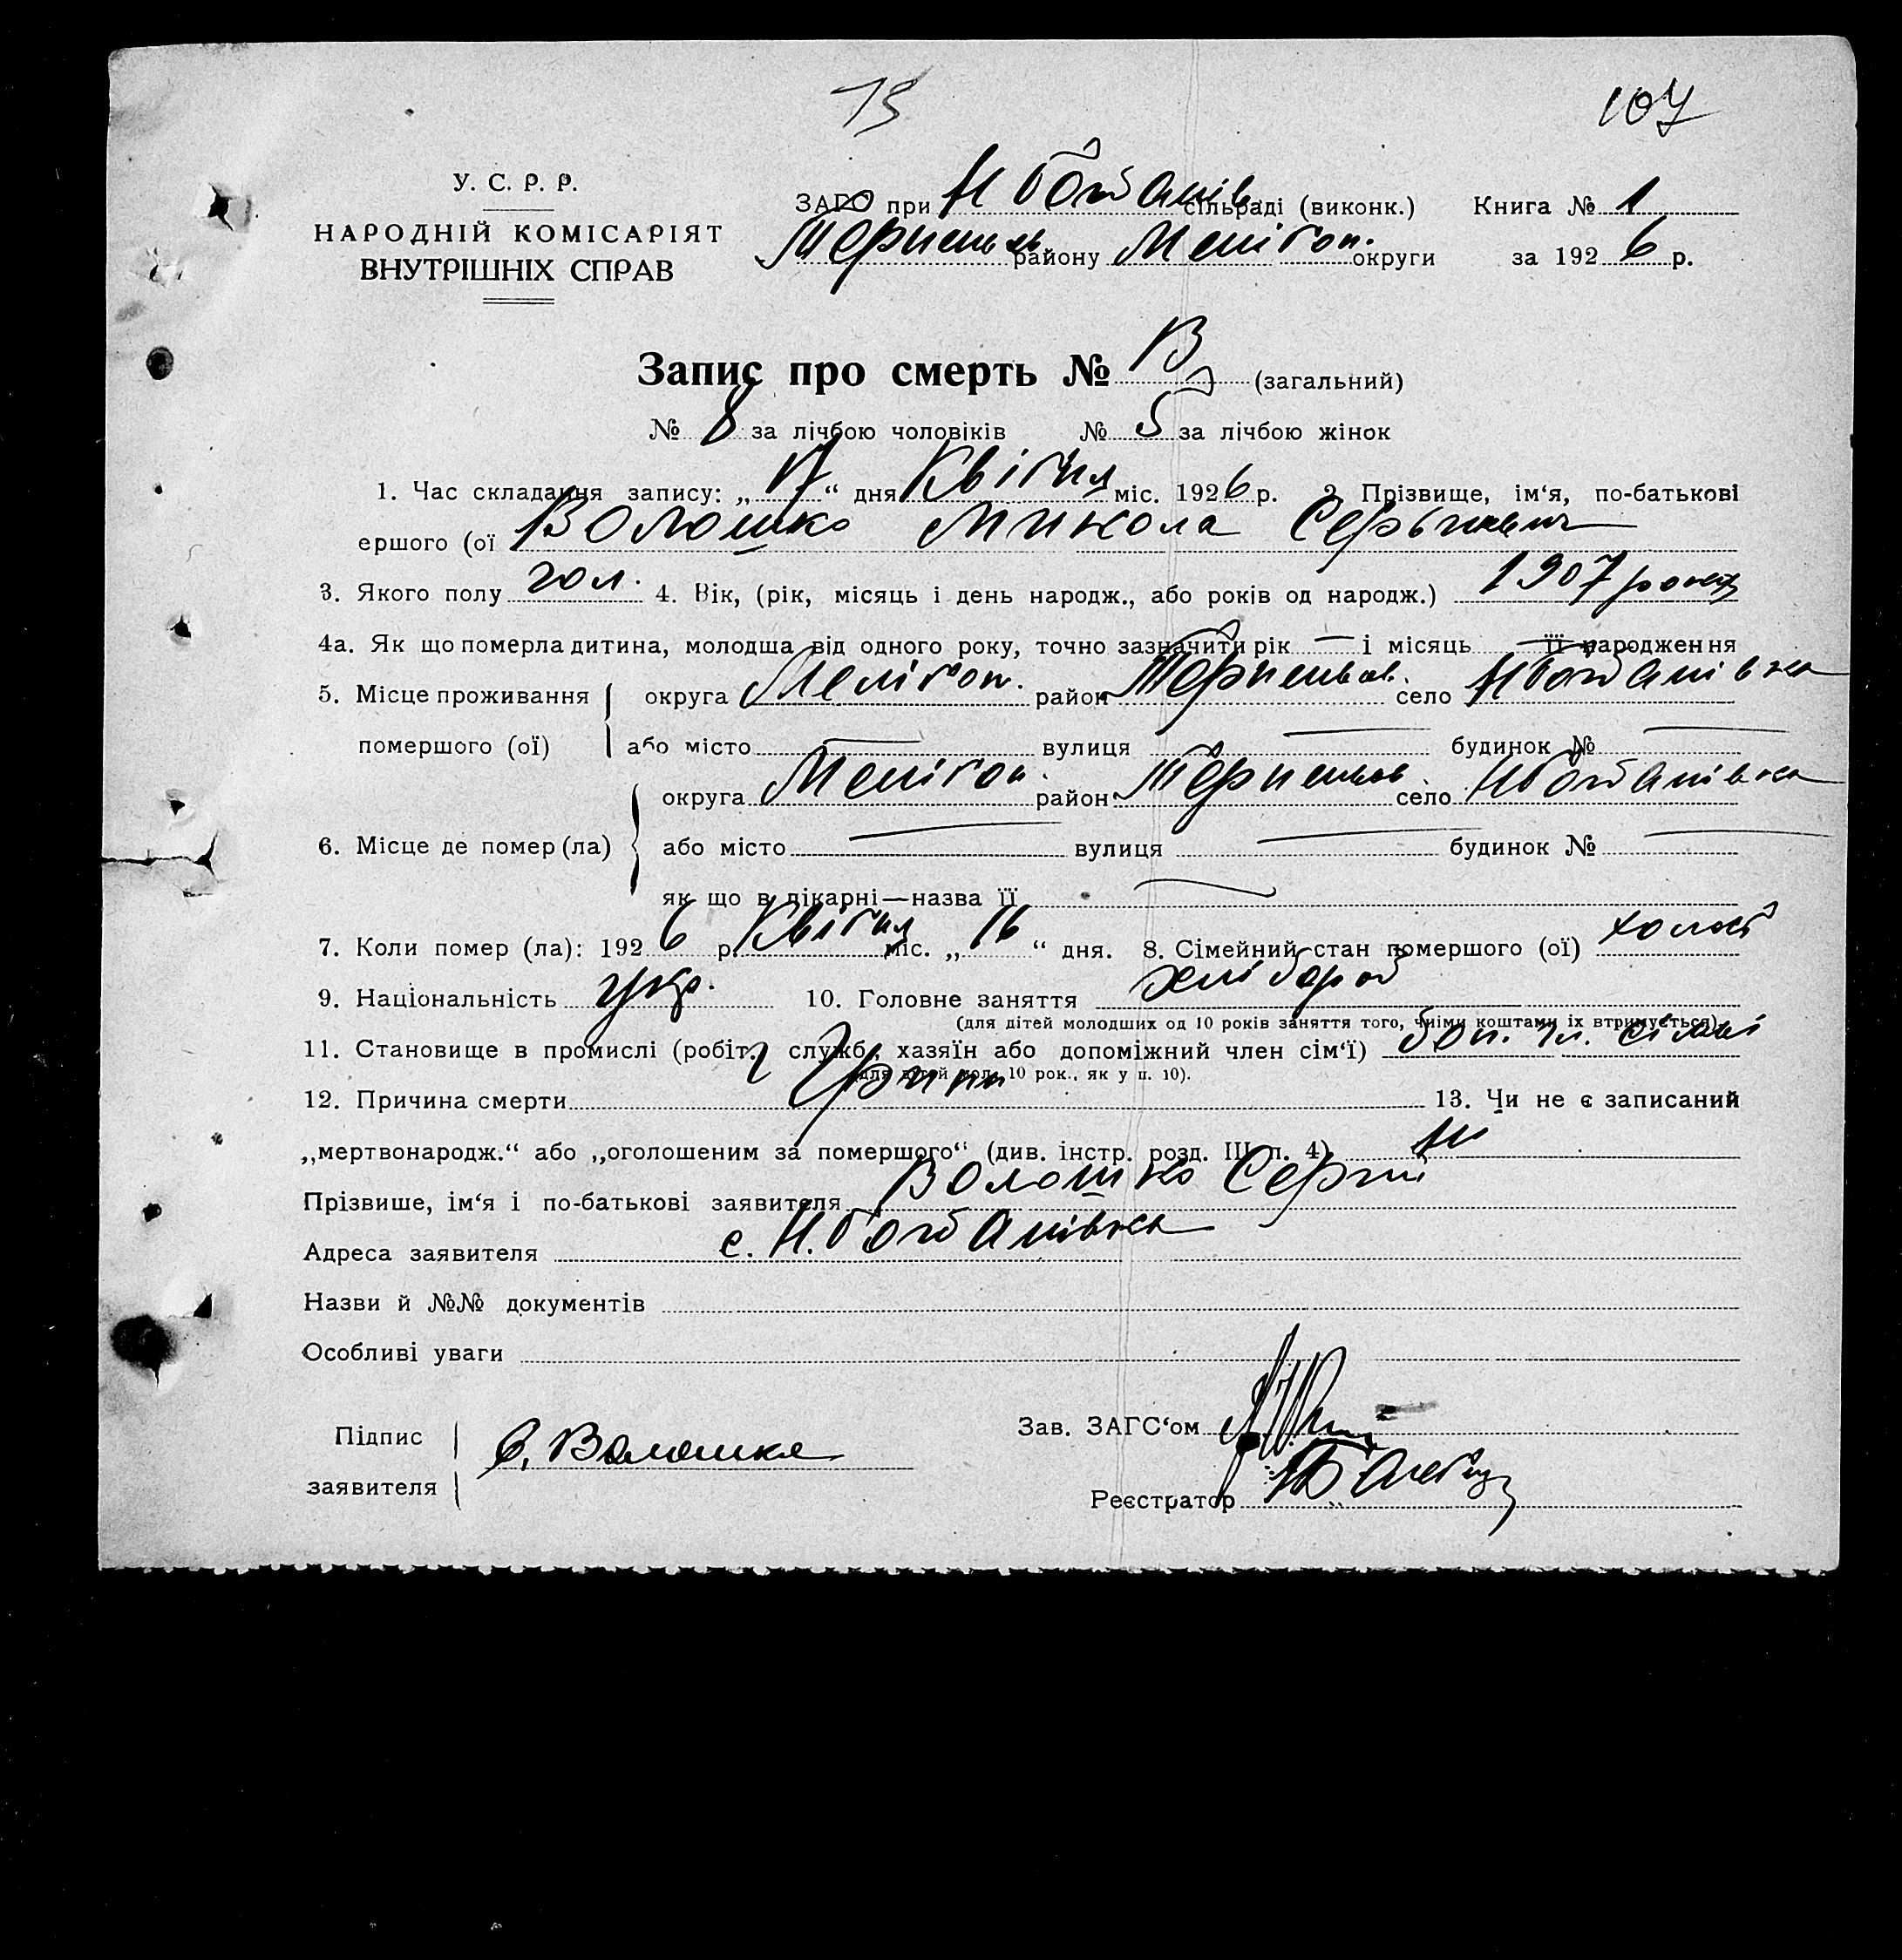 13 107
У. С. Р. Р.
НАРОДНІЙ КОМІСАРІЯТ
ВНУТРІШНІХ СПРАВ
ЗАГС при Н Богданів. сільраді (виконк.) Книга № 1
Терпеньєв району Мелітоп. округи за 1926 р.
Запис про смерть № 13 (загальний)
№ 8 за лічбою чоловіків № 5 за лічбою жінок
1. Час складання запису: „17“ дня Квітня міс. 1926 р. 2. Прізвище, ім‘я, по-батькові
ершого (ої Волошко Микола Сергієвич
3. Якого полу чол. 4. Вік, (рік, місяць і день народж., або років од народж.) 1907 року
4а. Як що померла дитина, молодша від одного року, точно зазначити рік — і місяць — її народження
5. Місце проживання округа Мелітоп. район Терпеньєв. село Н Богданівка
помершого (ої) або місто — вулиця — будинок № —
округа Мелітоп. район Терпеньєв. село Н Богданівка
6. Місце де помер (ла) або місто — вулиця — будинок № —
як що в лікарні—назва її —
7. Коли помер (ла): 1926 р. Квітня міс. „16“ дня. 8. Сімейний стан помершого (ої) холост
9. Національність укр. 10. Головне заняття хлібороб
(для дітей молодших од 10 років заняття того, чиїми коштами їх втримується)
11. Становище в промислі (робіт., служб., хазяїн або допоміжний член сім‘ї) доп. чл. сімьї
(для дітей мол. 10 рок., як у п. 10).
12. Причина смерти Грипп 13. Чи не є записаний
„мертвонародж.“ або „оголошеним за помершого“ (див. інстр. розд. III п. 4) ні
Прізвише, ім‘я і по-батькові заявителя Волошко Сергій
Адреса заявителя с. Н. Богданівка
Назви й №№ документів
Особливі уваги
Підпис заявителя С. Волошко
Зав. ЗАГС‘ом
Реєстратор